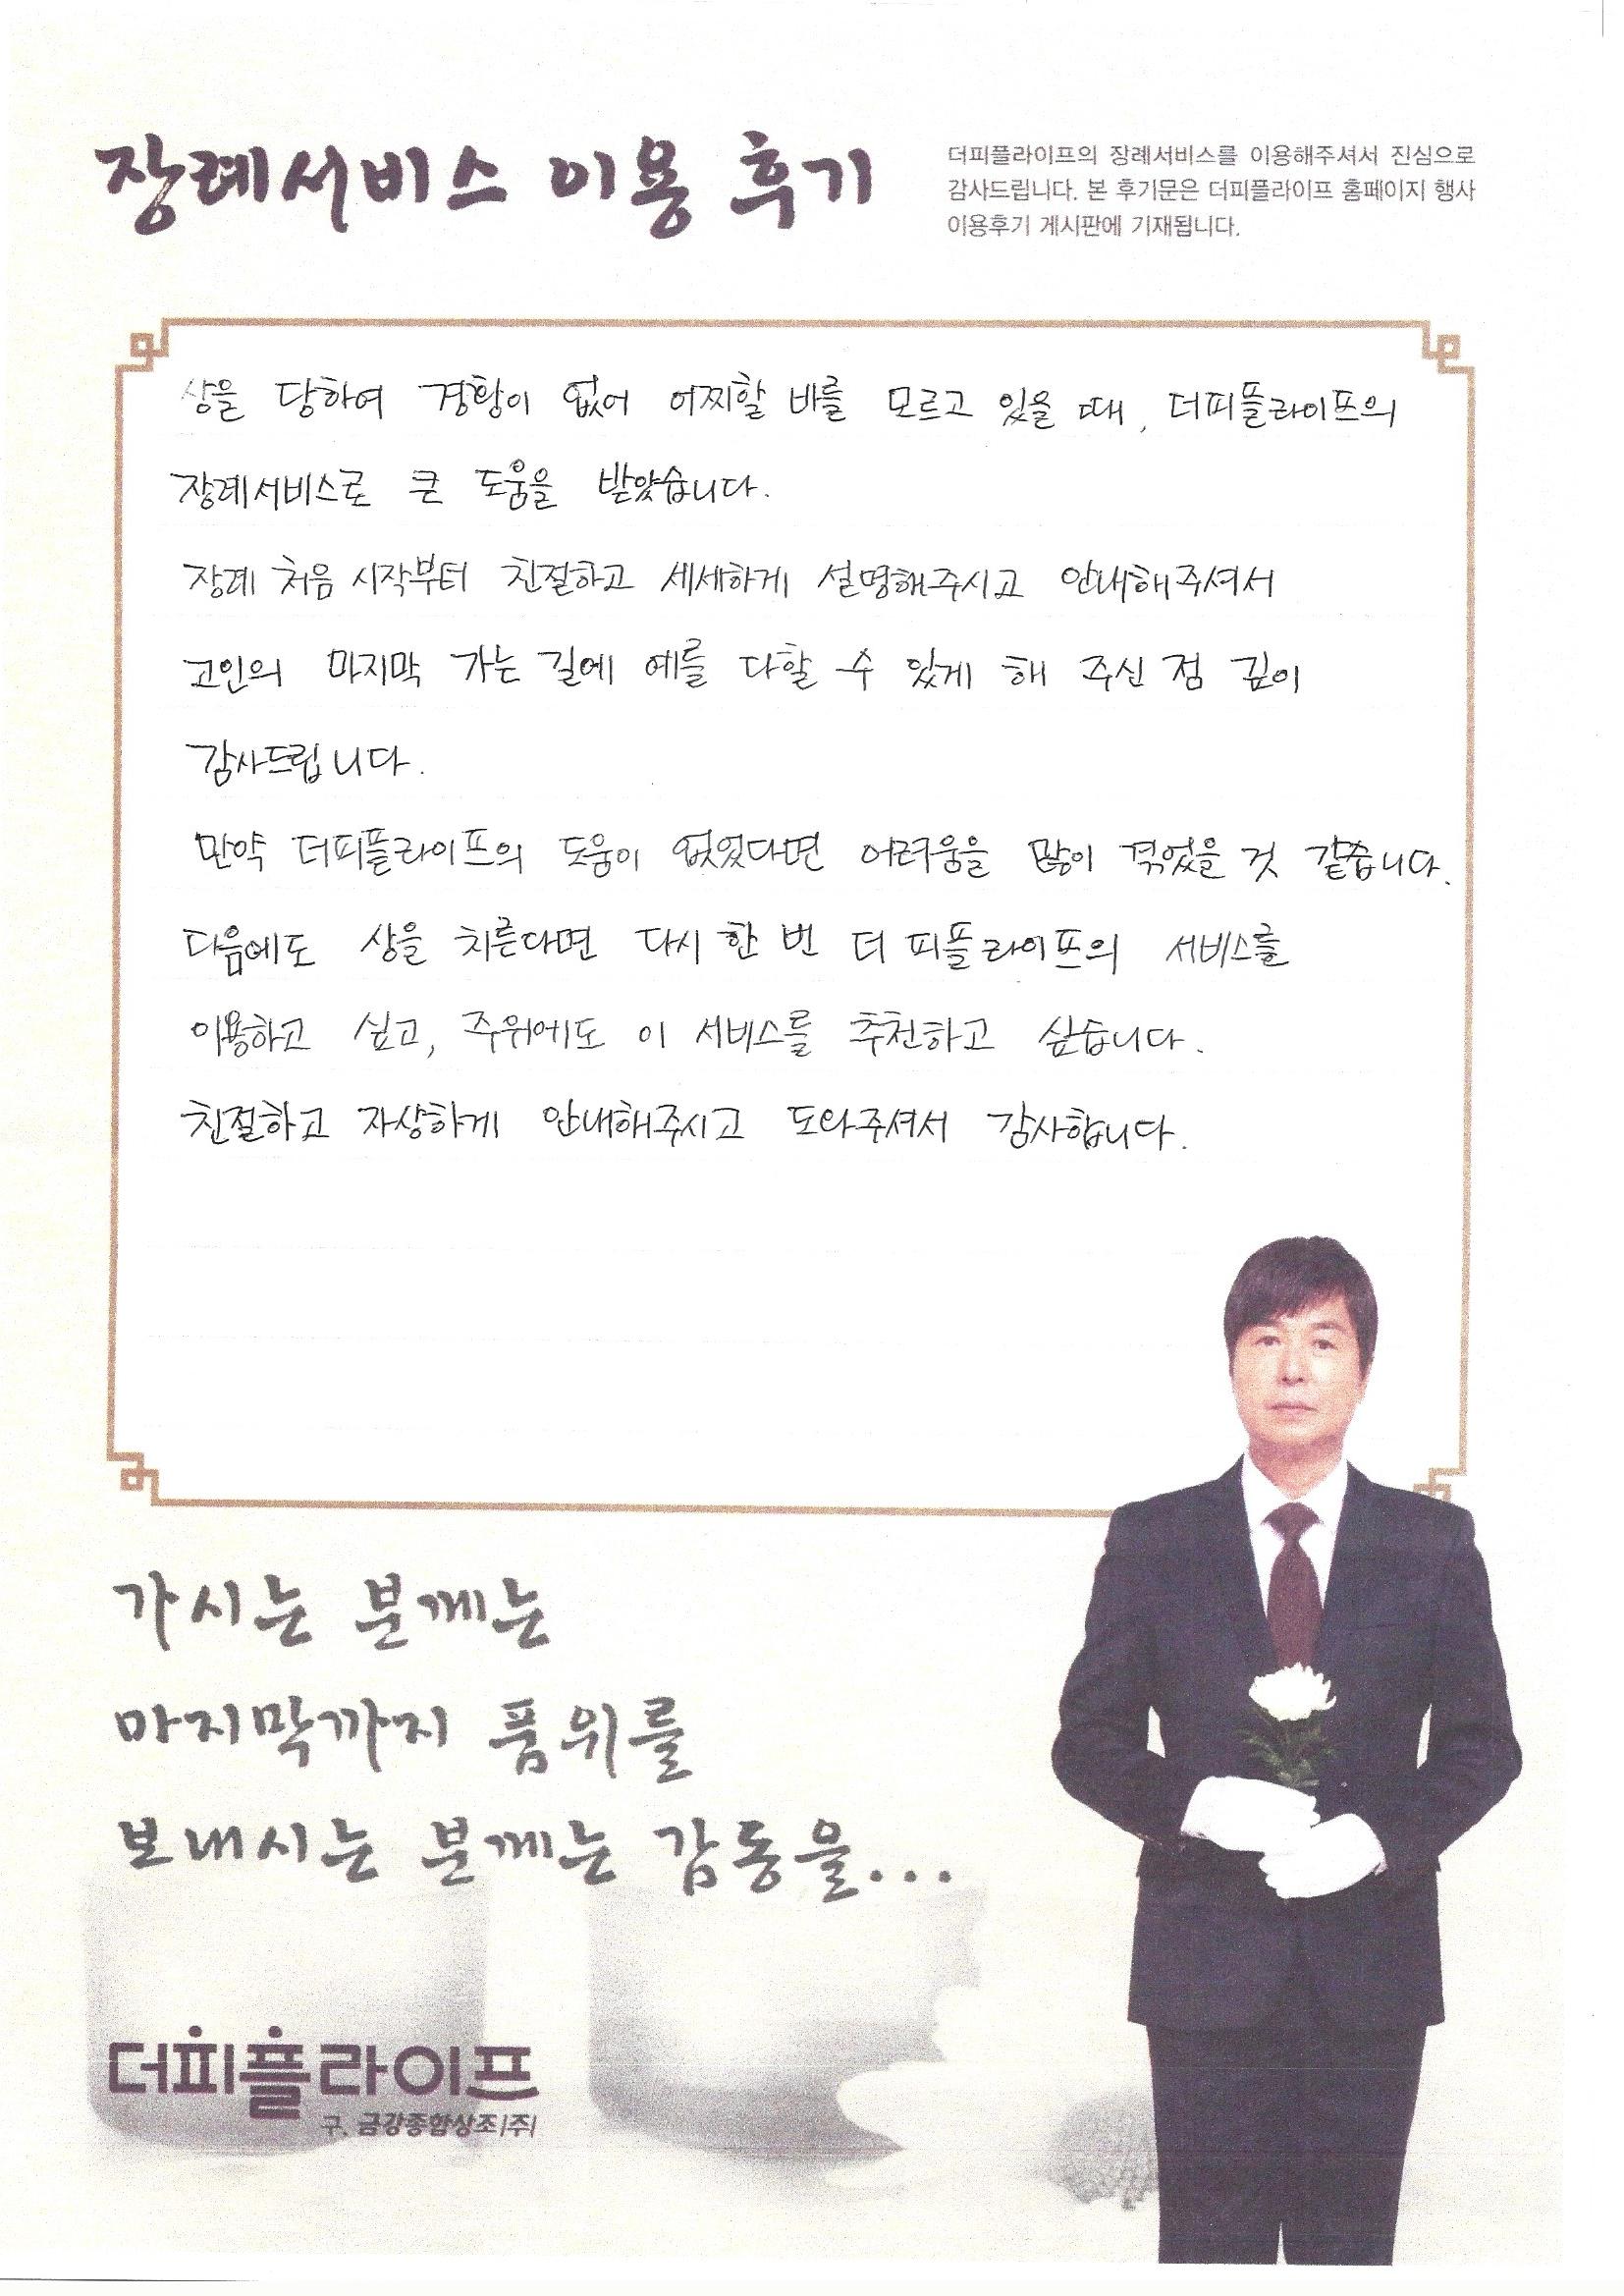 장례서비스 이용 후기
더피플라이프의 장례서비스를 이용해주셔서 진심으로
감사드립니다. 본 후기문은 더피플라이프 홈페이지 행사
이용후기 게시판에 기재됩니다.
상을 당하여 경황이 없어 어찌할 바를 모르고 있을 때, 더피플라이프의
장례서비스로 큰 도움을 받았습니다.
장례 처음 시작부터 친절하고 세세하게 설명해주시고 안내해주셔서
고인의 마지막 가는 길에 예를 다할 수 있게 해 주신 점 깊이
감사드립니다.
만약 더피플라이프의 도움이 없었다면 어려움을 많이 겪었을 것 같습니다.
다음에도 상을 치른다면 다시 한 번 더 피플라이프의 서비스를
이용하고 싶고, 주위에도 이 서비스를 추천하고 싶습니다.
친절하고 자상하게 안내해주시고 도와주셔서 감사합니다.
가시는 분께는
마지막까지 품위를
보내시는 분께는 감동을...
더피플라이프
구. 금강종합상조(주)